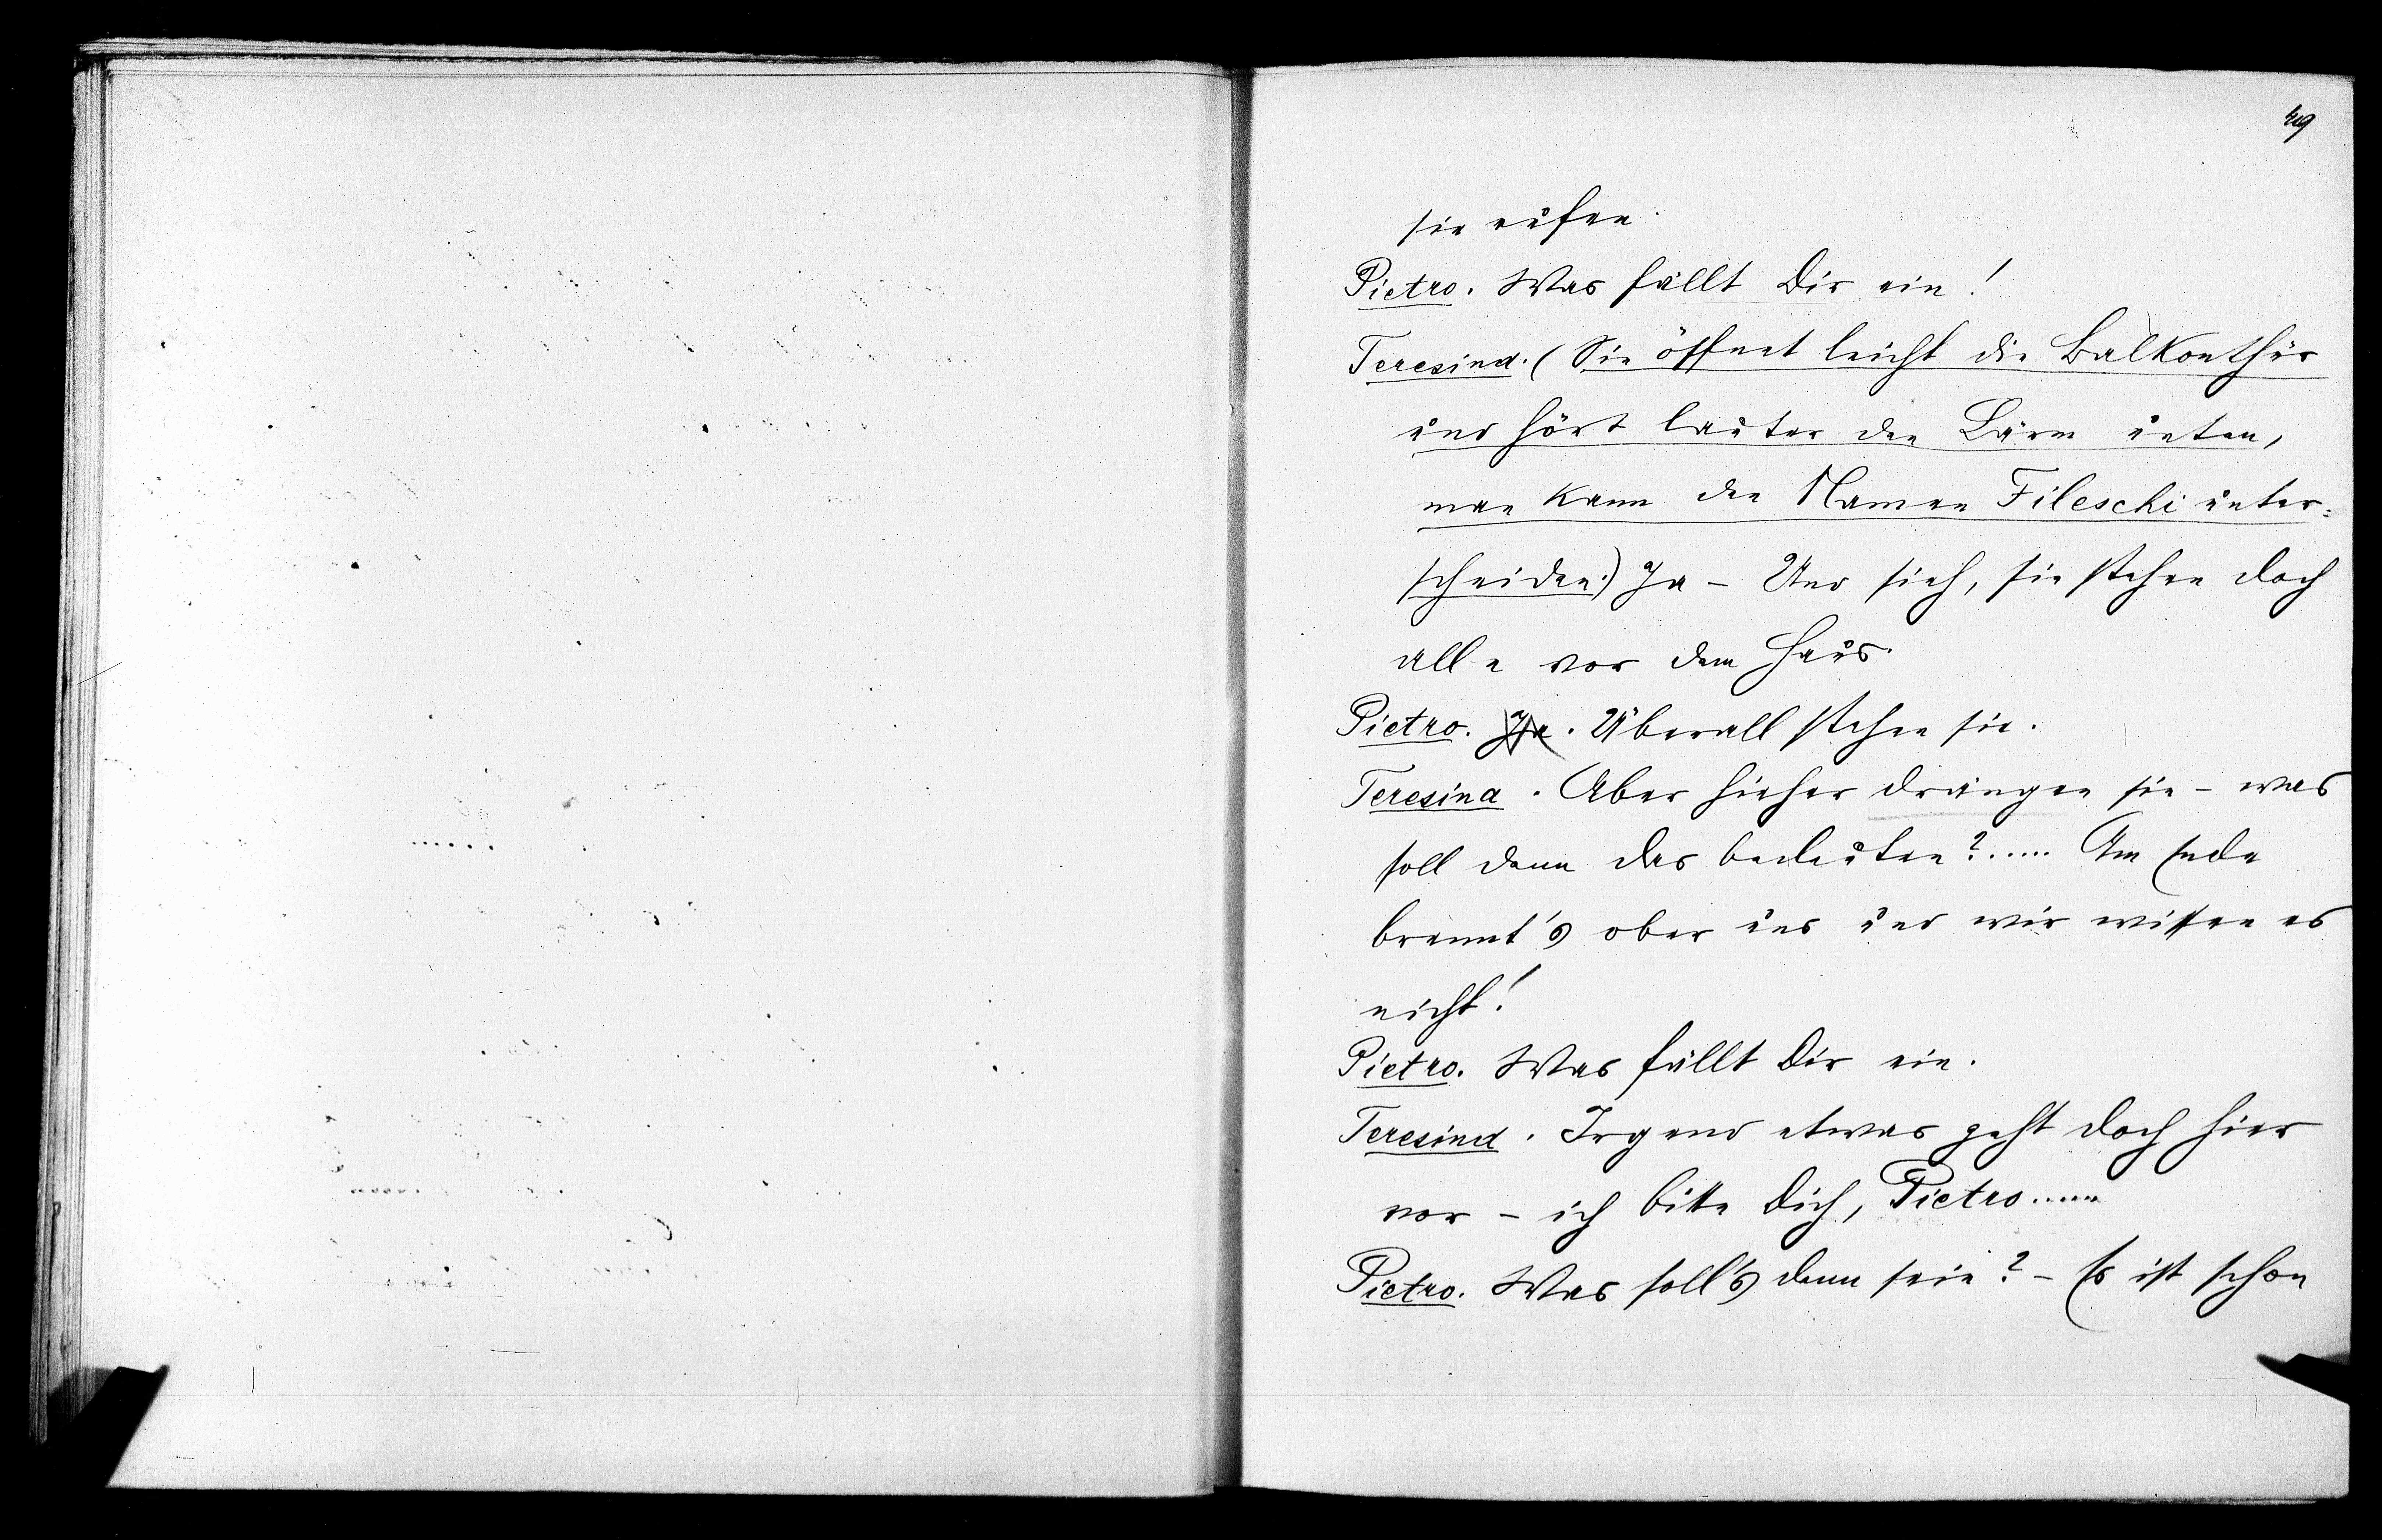 49
sie rufen.
Pietro. Was fällt Dir ein!
Teresina. (Sie öffnet leicht die Balkonthür
und hört lauter den Lärm unten,
man kann den Namen Fileschi unter=
scheiden.) Ja – Und sieh, sie stehen doch
alle vor dem Haus.
Pietro. Ja. Überall stehen sie.
Teresina. Aber hieher drängen sie – was
soll denn das bedeuten?..... Am Ende
brennt's ober uns und wir wissen es
nicht!
Pietro. Was fällt Dir ein.
Teresina. Irgend etwas geht doch hier
vor – ich bitte Dich, Pietro.....
Pietro. Was soll's denn sein? – Es ist schon